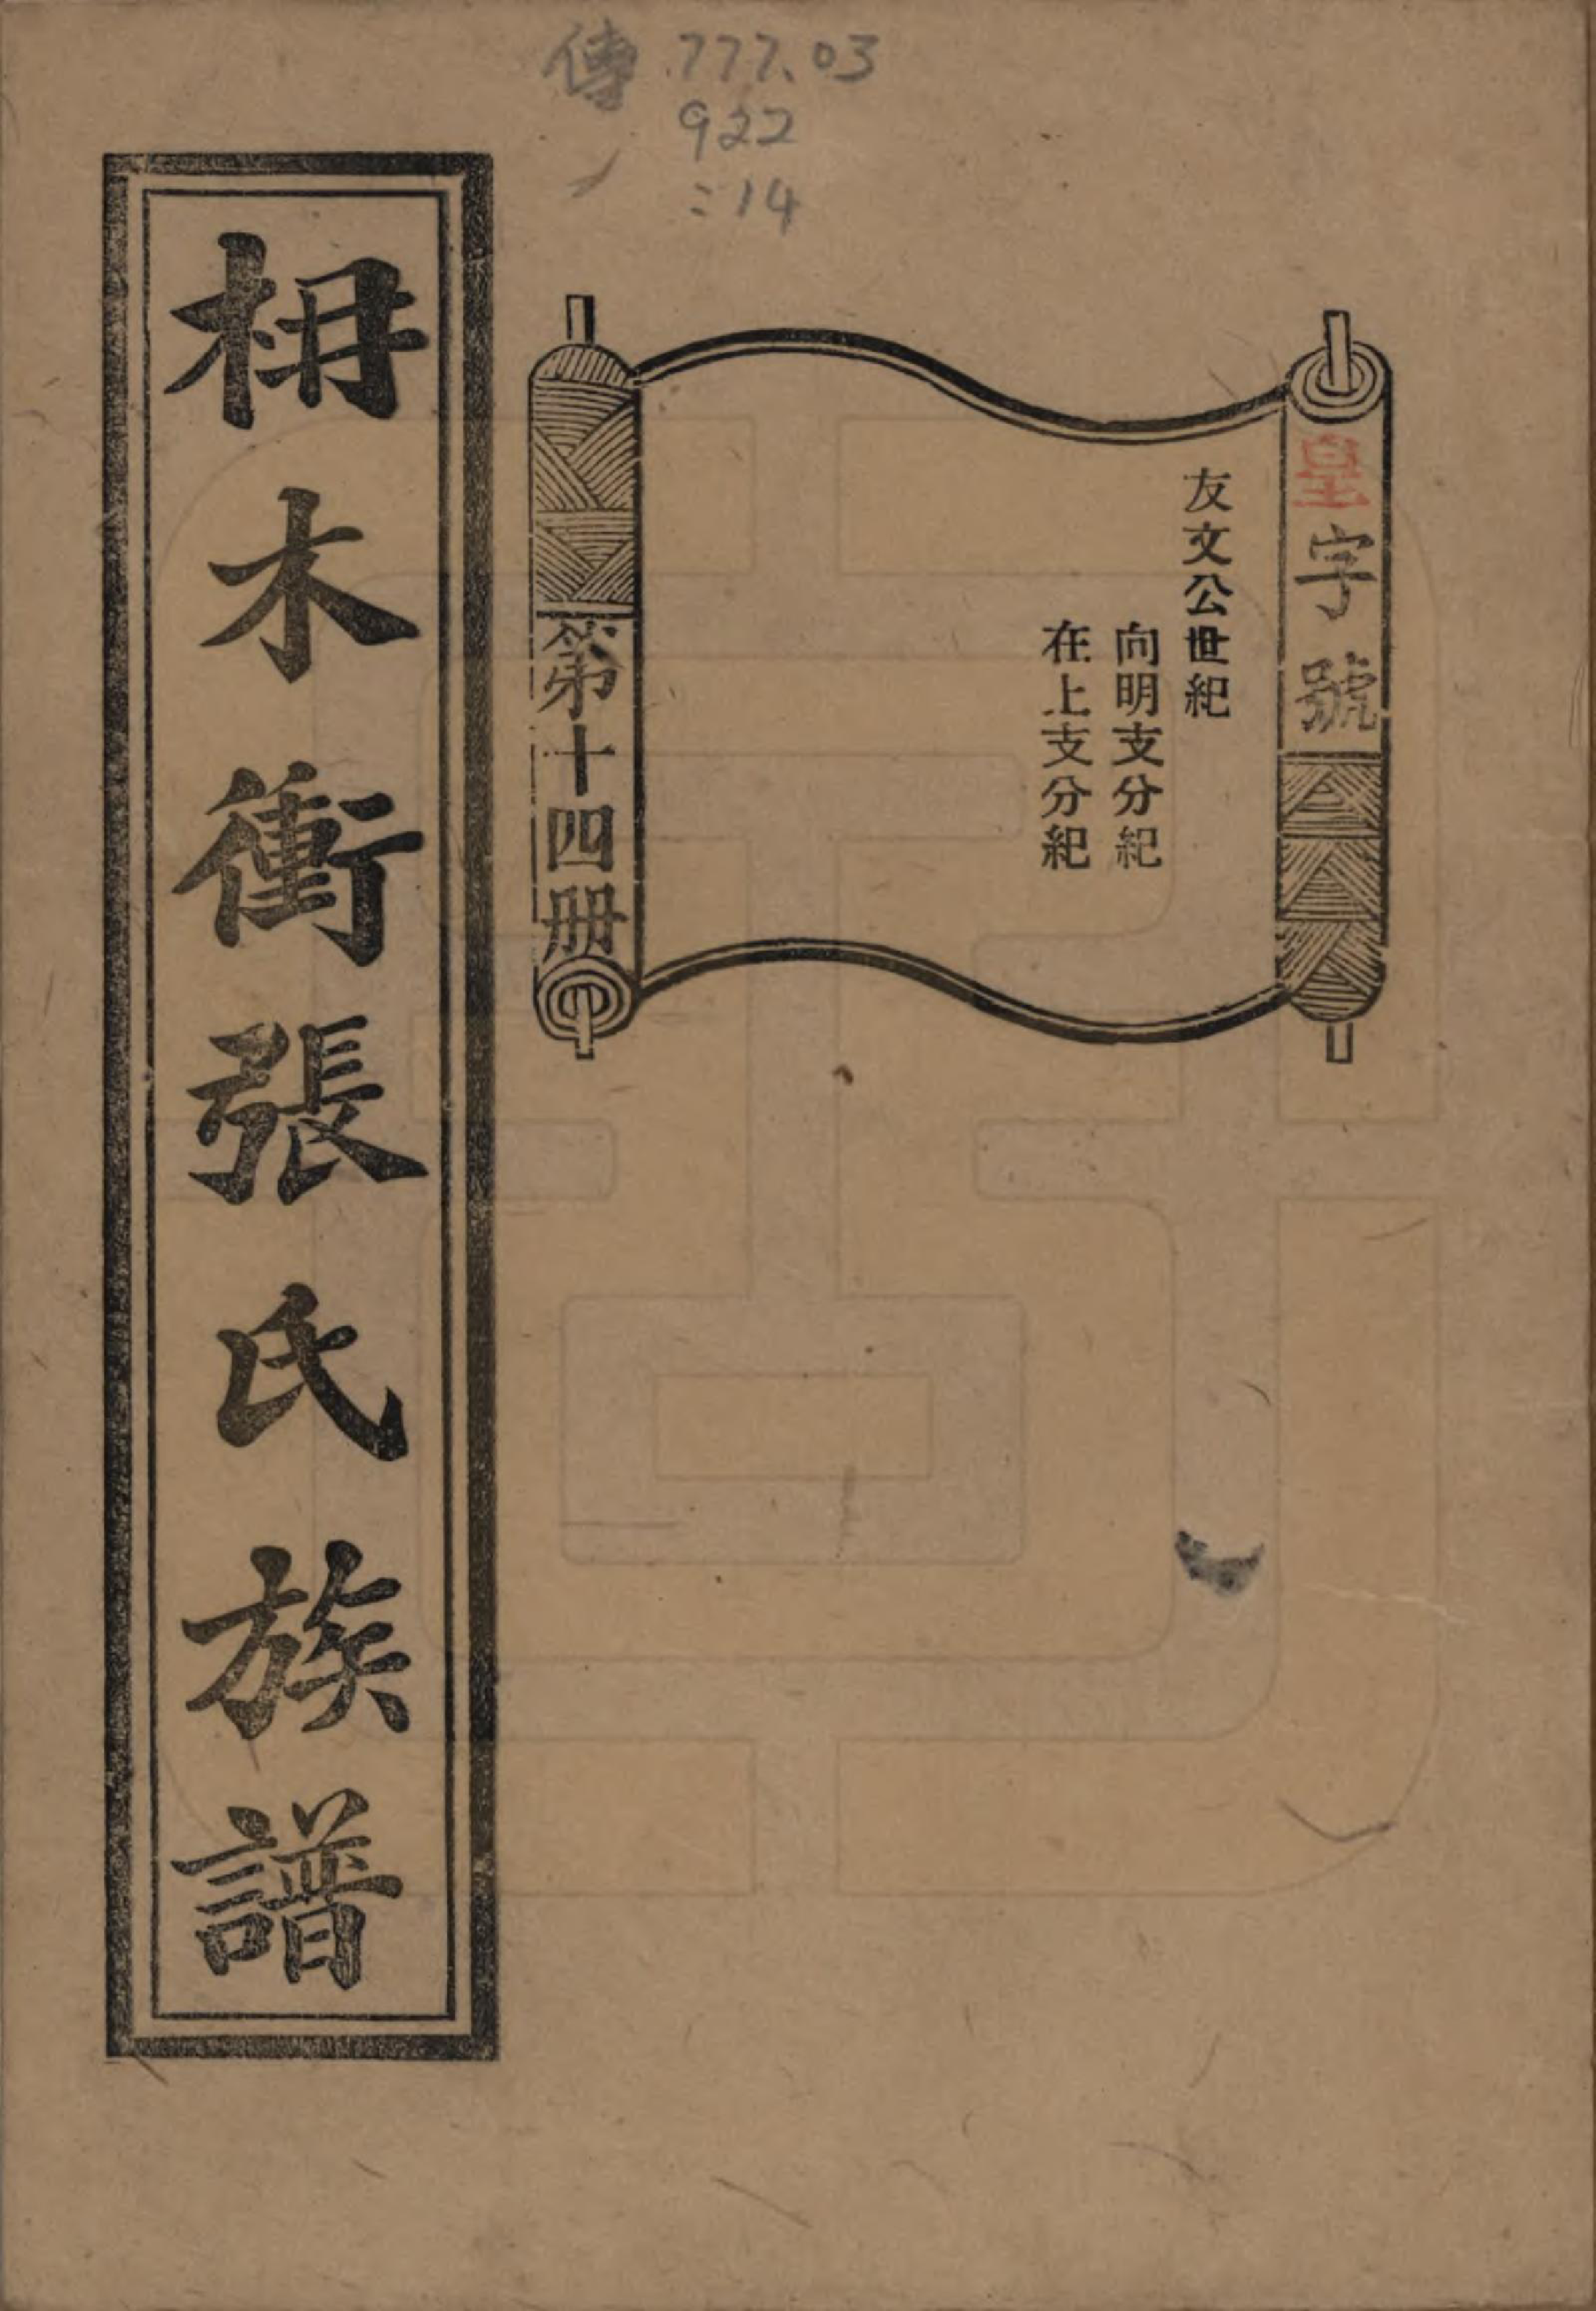 傳 777.03
922
:14
皇字號
友文公世紀
向明支分紀
在上支分紀
第十四册
枏木衝張氏族譜